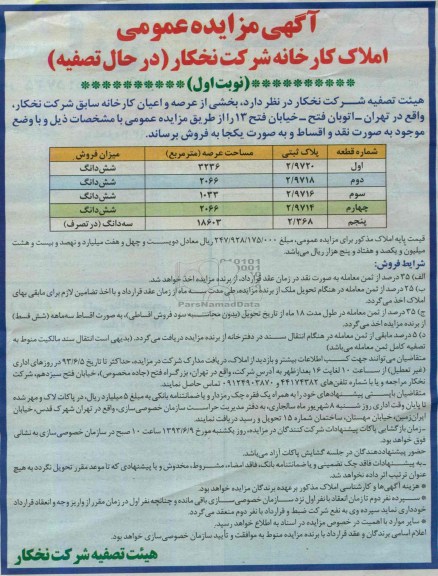 آگهی مزایده عمومی
املاک کارخانه شرکت نخکار (در حال تصفیه)
********** (نوبت اول) **********
هیئت تصفیه شرکت نخکار در نظر دارد، بخشی از عرصه و اعیان کارخانه سابق شرکت نخکار،
واقع در تهران ـ اتوبان فتح ـ خیابان فتح ۱۳ را از طریق مزایده عمومی با مشخصات ذیل و با وضع
موجود به صورت نقد و اقساط و به صورت یکجا به فروش برساند.
شماره قطعه پلاک ثبتی مساحت عرصه (مترمربع) میزان فروش
اول ۲/۹۷۲۰ ۳۲۳۶ شش‌دانگ
دوم ۲/۹۷۱۸ ۲۰۶۶ شش‌دانگ
سوم ۲/۹۷۱۶ ۱۰۳۳ شش‌دانگ
چهارم ۲/۹۷۱۴ ۲۰۶۶ شش‌دانگ
پنجم ۲/۳۶۸ ۱۸۶۰۳ سه‌دانگ (در تصرف)
قیمت پایه املاک مذکور برای مزایده عمومی، مبلغ ۲۴۷/۹۲۸/۱۷۵/۰۰۰ ریال معادل دویست و چهل و هفت میلیارد و نهصد و بیست و هشت
میلیون و یکصد و هفتاد و پنج هزار ریال می‌باشد.
شرایط فروش:
الف) ۳۵ درصد از ثمن معامله به صورت نقد در زمان عقد قرارداد، از برنده مزایده اخذ خواهد شد.
ب) ۲۵ درصد از ثمن معامله در هنگام تحویل ملک از برنده مزایده، طی مدت سه ماه از زمان عقد قرارداد و با اخذ تضامین لازم برای مابقی بهای
املاک اخذ می‌گردد.
ج) ۳۵ درصد از ثمن معامله در طول مدت ۱۸ ماه از تاریخ تحویل (بدون محاسبه سود فروش اقساطی)، به صورت اقساط سه‌ماهه (شش قسط)
از برنده مزایده اخذ می‌گردد.
د) ۵ درصد مابقی از ثمن معامله در هنگام انتقال مستند در دفترخانه از برنده مزایده دریافت می‌گردد. (بدیهی است انتقال سند مالکیت منوط به
تصفیه کامل ثمن معامله می‌باشد)
متقاضیان می‌توانند جهت کسب اطلاعات بیشتر و بازدید از املاک، دریافت مدارک شرکت در مزایده، حداکثر تا تاریخ ۹۳/۶/۵ در روزهای اداری
(غیر تعطیل) از ساعت ۱۰ لغایت ۱۶ بعدازظهر به آدرس شرکت، واقع در تهران، بزرگراه فتح (جاده مخصوص)، خیابان فتح سیزدهم، شرکت
نخکار مراجعه و یا با شماره تلفن‌های ۴۴۱۷۴۳۸۲ و ۰۹۱۲۴۹۰۲۸۷۰ تماس حاصل نمایند.
متقاضیان بایستی پیشنهادهای خود را به همراه یک فقره چک رمزدار و یا ضمانتنامه بانکی به مبلغ ۵ میلیارد ریال، در پاکات لاک و مهر شده
تا پایان وقت اداری روز شنبه ۸ شهریور ماه سالجاری، به دفتر مدیریت حراست سازمان خصوصی‌سازی، واقع در تهران شهرک قدس، خیابان
ایران‌زمین، خیابان مهستان، ساختمان شماره ۱۵ تحویل و رسید دریافت نمایند.
ـ زمان بازگشایی پاکات پیشنهادات شرکت‌کنندگان در مزایده، روز یکشنبه مورخ ۱۳۹۳/۶/۹ ساعت ۱۰ صبح در سازمان خصوصی‌سازی به نشانی
فوق خواهد بود.
حضور پیشنهاددهندگان در جلسه گشایش پاکات آزاد می‌باشد.
ـ به پیشنهادات فاقد چک تضمینی و یا ضمانتنامه بانکی، فاقد امضاء، مشروط، مخدوش و یا پیشنهادی که تا موعد مقرر تحویل نگردد به هیچ
عنوان ترتیب اثر داده نخواهد شد.
* هزینه آگهی‌ها و کارشناسی املاک مذکور بر عهده برندگان مزایده خواهد بود.
* سپرده نفر دوم تا زمان انعقاد با نفر اول نزد سازمان خصوصی‌سازی باقی مانده و چنانچه نفر اول در زمان مقرر از واریز وجه و انعقاد قرارداد
خودداری نماید سپرده وی به نفع شرکت ضبط و قرارداد با نفر دوم منعقد می‌گردد.
* سایر موارد با اهمیت در خصوص مزایده در اسناد به اطلاع خواهد رسید.
اعلام اسامی برندگان و عقد قرارداد با برنده مزایده منوط به موافقت و تأیید سازمان خصوصی‌سازی خواهد بود.
هیئت تصفیه شرکت نخکار